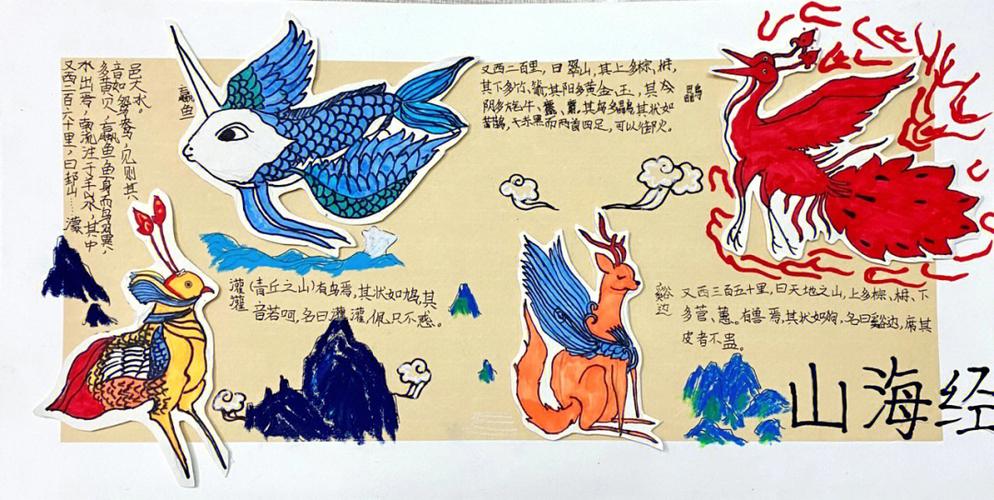 又西二百六十里，曰邽山……濛
水出焉，南流注于羊水，其中
多黄贝，蠃鱼，鱼身而鸟翼，
音如鸳鸯，见则其
邑大水。
蠃鱼
又西二百里，曰翠山，其上多棕、枏，
其下多竹、箭，其阳多黄金、玉，其
阴多旄牛、麢、麝，其鸟多鸓，其状如
鹊，赤黑而两首四足，可以御火。
鸓
灌灌
（青丘之山）有鸟焉，其状如鸠，其
音若呵，名曰灌灌，佩只不惑。
谿边
又西三百五十里，曰天地之山，上多棕、枏、下
多菅、蕙。有兽焉，其状如狗，名曰谿边，席其
皮者不蛊。
山海经